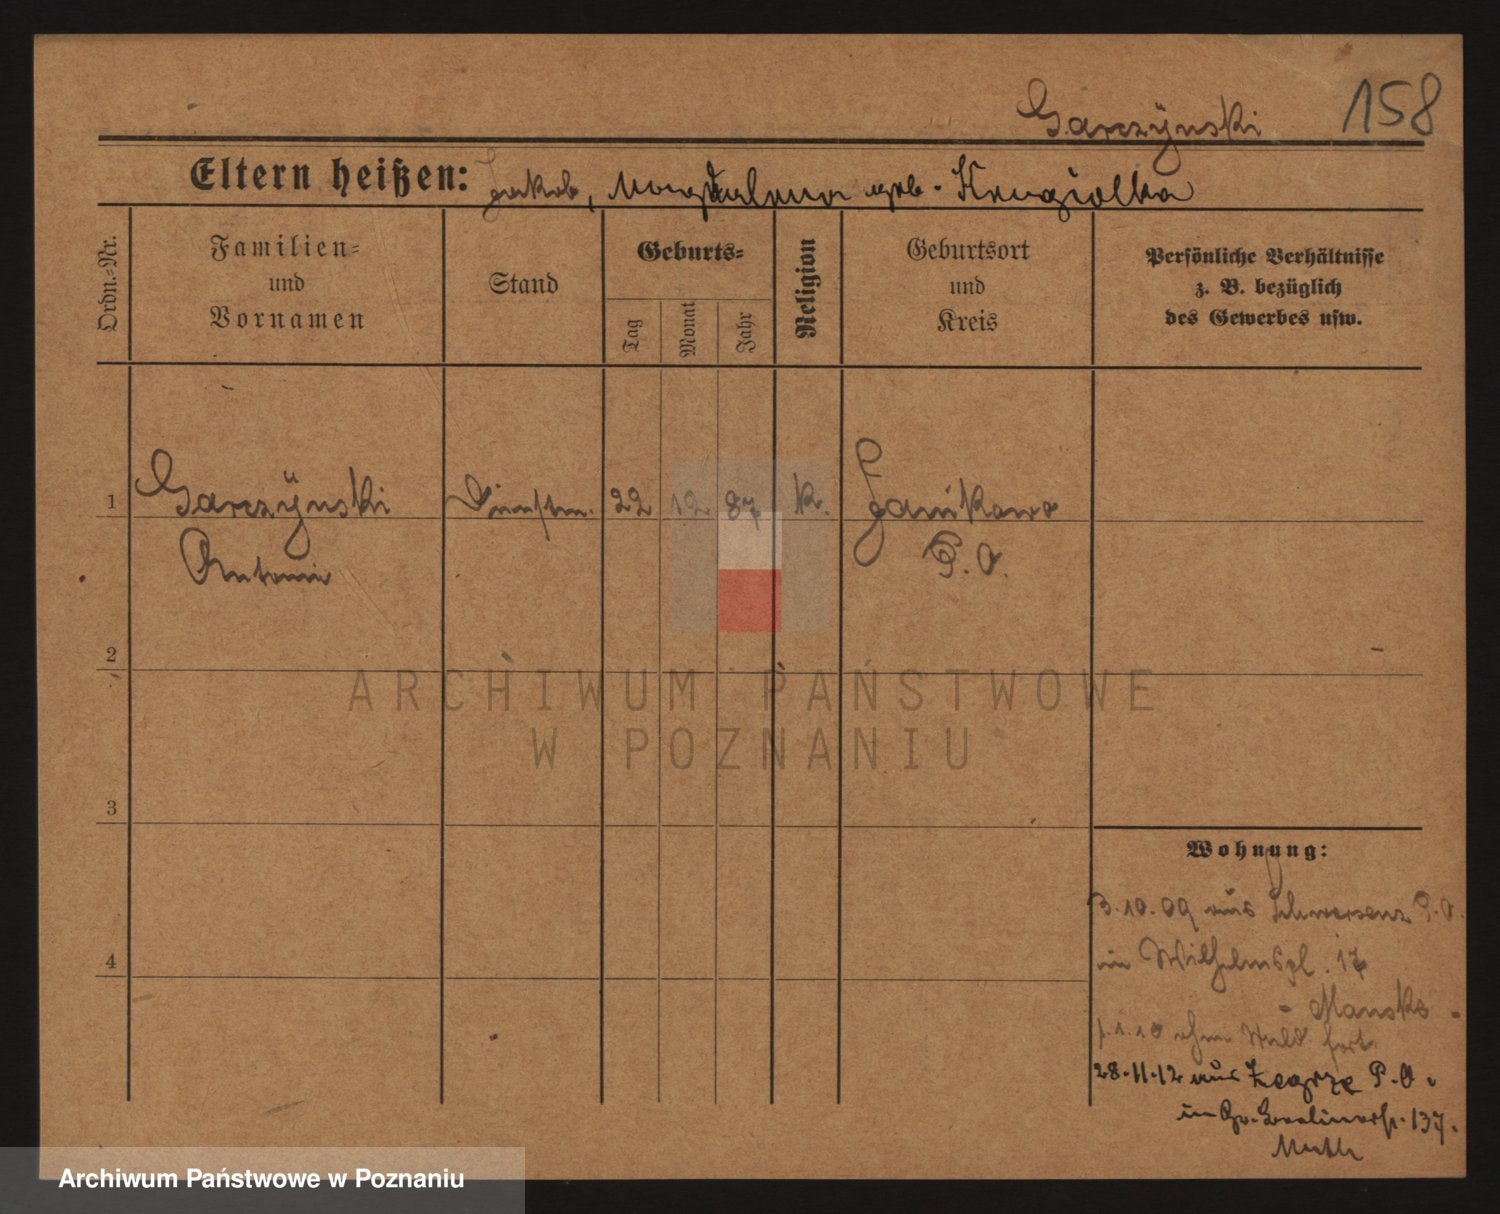 Garczÿnski 158
Eltern heißen: Jakob, Magdalena geb. Krugiolka
Ordn.=Nr.
Familien=
und
Vornamen
Stand
Geburts=
Tag
Monat
Jahr
Religion
Geburtsort
und
Kreis
Persönliche Verhältnisse
z. B. bezüglich
des Gewerbes usw.
1 Garczÿnski 22 12 87 k. Janikowo
Antonie P. O.
2
3
4
Wohnung:
3.10.09 aus Schwersenz P.O.
in Wilhelmspl. 17
- Manske -
1.10 fort
28.11.12 aus Zegrze P.O.
in Gr. Berlinerstr. 137.
Muth
ARCHIWUM PAŃSTWOWE
W POZNANIU
Archiwum Państwowe w Poznaniu